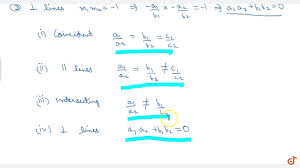 (3) ⊥ lines m₁m₂ = -1 ⇒ -a₁/b₁ × -a₂/b₂ = -1 ⇒ a₁a₂ + b₁b₂ = 0
(i) Coincident a₁/a₂ = b₁/b₂ = c₁/c₂
(ii) || lines a₁/a₂ = b₁/b₂ ≠ c₁/c₂
(iii) Intersecting a₁/a₂ ≠ b₁/b₂
(iv) ⊥ lines a₁a₂ + b₁b₂ = 0